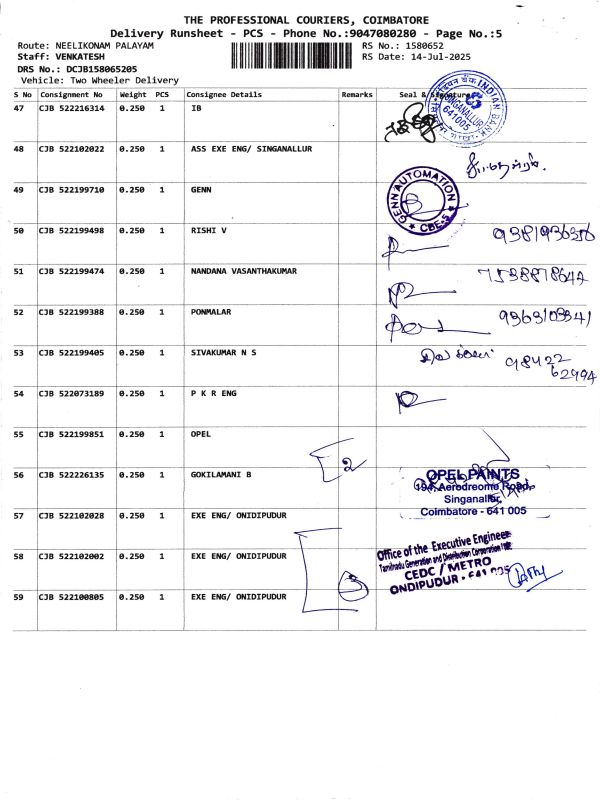 THE PROFESSIONAL COURIERS, COIMBATORE
Delivery Runsheet - PCS - Phone No.:9047080280 - Page No.:5
Route: NEELIKONAM PALAYAM RS No.: 1580652
Staff: VENKATESH RS Date: 14-Jul-2025
DRS No.: DCJB158065205
Vehicle: Two Wheeler Delivery
S No Consignment No Weight PCS Consignee Details Remarks Seal & Signature
47 CJB 522216314 0.250 1 IB
INDIAN BANK
SINGANALLUR
641005
48 CJB 522102022 0.250 1 ASS EXE ENG/ SINGANALLUR
49 CJB 522199710 0.250 1 GENN
GENN AUTOMATION
★ CBE-5 ★
50 CJB 522199498 0.250 1 RISHI V
51 CJB 522199474 0.250 1 NANDANA VASANTHAKUMAR
7538878642
52 CJB 522199388 0.250 1 PONMALAR
9363103341
53 CJB 522199405 0.250 1 SIVAKUMAR N S
98422
62994
54 CJB 522073189 0.250 1 P K R ENG
55 CJB 522199851 0.250 1 OPEL
2
56 CJB 522226135 0.250 1 GOKILAMANI B
OPEL PAINTS
194, Aerodreome Road,
Singanallur,
Coimbatore - 641 005
57 CJB 522102028 0.250 1 EXE ENG/ ONIDIPUDUR
58 CJB 522102002 0.250 1 EXE ENG/ ONIDIPUDUR
Office of the Executive Engineer
Tamilnadu Generation and Distribution Corporation
CEDC / METRO
ONDIPUDUR - 641 005
3
59 CJB 522100805 0.250 1 EXE ENG/ ONIDIPUDUR